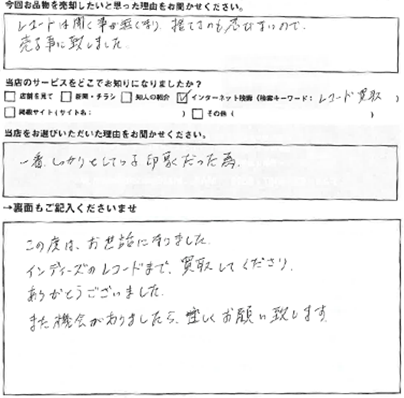 今回お品物を売却したいと思った理由をお聞かせください。
レコードは聞く事が無くなり、捨てるのも忍びないので、
売る事に致しました。
当店のサービスをどこでお知りになりましたか？
□ 店舗を見て □ 新聞・チラシ □ 知人の紹介 ☑ インターネット検索（検索キーワード：レコード買取）
□ 掲載サイト（サイト名： ） □ その他（ ）
当店をお選びいただいた理由をお聞かせください。
一番、しっかりとしてる印象だった為
→裏面もご記入くださいませ
この度は、お世話になりました。
インディーズのレコードまで、買取してくださり、
ありがとうございました。
また機会がありましたら、宜しくお願い致します。